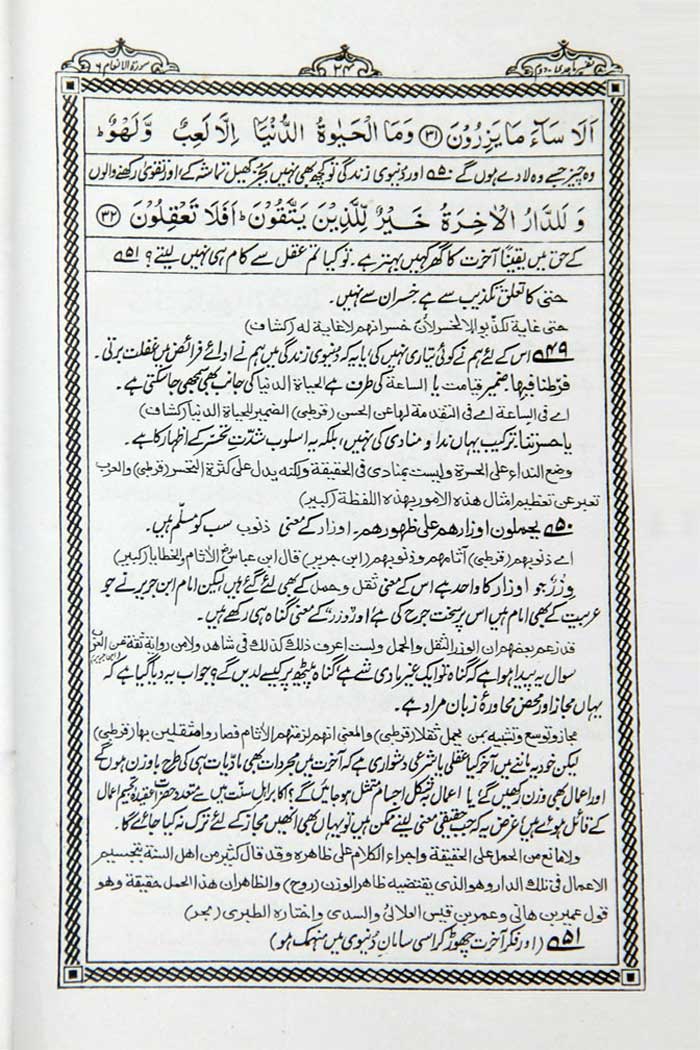 تفسیر ماجدی۔ دوم
۲۴
سورۃ الانعام ۶
اَلَا سَآءَ مَا یَزِرُوۡنَ ﴿۳۱﴾ وَمَا الۡحَیٰوةُ الدُّنۡیَاۤ اِلَّا لَعِبٌ وَّلَهۡوٌ ؕ
وہ چیز جسے وہ لادے ہوں گے ۵۰ اور دُنیوی زندگی تو کچھ بھی نہیں بجز کھیل تماشہ کے اور تقویٰ رکھنے والوں
وَلَلدَّارُ الۡاٰخِرَةُ خَیۡرٌ لِّلَّذِیۡنَ یَتَّقُوۡنَ ؕ اَفَلَا تَعۡقِلُوۡنَ ﴿۳۲﴾
کے حق میں یقینًا آخرت کا گھر کہیں بہتر ہے۔ تو کیا تم عقل سے کام ہی نہیں لیتے؟ ۵۱
حتی کا تعلق تکذیب سے ہے خسران سے نہیں۔
حتی غایة لکذبوا لا لخسر لان خسرانهم لا غایة له (کشاف)
۴۹ اس کے لئے ہم نے کوئی تیاری نہیں کی یا یہ کہ دُنیوی زندگی میں ہم نے ادائے فرائض میں غفلت برتی۔
فرطنا فیها۔ ضمیر قیامت یا الساعة کی طرف ہے الحیاة الدنیا کی جانب بھی سمجھی جا سکتی ہے۔
اے فی الساعة اے فی التقدمة لها عن الحسن (قرطبی) الضمیر للحیاة الدنیا (کشاف)
یا حسرتنا۔ ترکیب یہاں ندا و منادی کی نہیں، بلکہ یہ اسلوب شدّتِ تحسّر کے اظہار کا ہے۔
وضع النداء علی الحسرة ولیست بمنادی فی الحقیقة ولکنه یدل علی کثرة التحسر (قرطبی) والعرب
تعبر عن تعظیم امثال هذه الامور بهذه اللفظة (کبیر)
۵۰ یحملون اوزارهم علی ظهورهم۔ اوزار کے معنی ذنوب سب کو مسلّم ہیں۔
اے ذنوبهم (قرطبی) آثامهم وذنوبهم (ابن جریر) قال ابن عباسؓ الآثام والخطایا (کبیر)
وِزْر جو اوزار کا واحد ہے اس کے معنی ثقل و حمل کے بھی لئے گئے ہیں لیکن امام ابن جریر نے جو
عربیت کے بھی امام ہیں اس پر سخت جرح کی ہے اور "وِزر" کے معنی گناہ ہی رکھے ہیں۔
قد زعم بعضهم ان الوزر الثقل والحمل ولست اعرف ذلك کذلك فی شاهد ولا من روایة ثقة عن العرب (ابن جریر)
سوال یہ پیدا ہوا ہے کہ گناہ تو ایک غیر مادی شے ہے گناہ پیٹھ پر کیسے لدیں گے؟ جواب یہ دیا گیا ہے کہ
یہاں مجاز اور محض محاورۂ زبان مراد ہے۔
مجاز و توسع و تشبیه بمن یحمل ثقلا (قرطبی) والمعنی انهم لزمتهم الآثام فصاروا مثقلین بها (قرطبی)
لیکن خود یہ ماننے میں آخر کیا عقلی یا شرعی دشواری ہے کہ آخرت میں مجردات بھی مادیات ہی کی طرح با وزن ہوں گے
اور اعمال بھی وزن رکھیں گے یا اعمال بہ شکل اجسام متمثل ہو جائیں گے؟ اکابر اہلِ سنّت میں سے متعدد حضرات عقیدۂ تجسیم اعمال
کے قائل ہوئے ہیں! غرض یہ کہ جب حقیقی معنی لینے ممکن ہیں تو یہاں بھی انھیں مجاز کے لئے ترک نہ کیا جائے گا۔
ولا مانع من الحمل علی الحقیقة واجراء الکلام علی ظاهره وقد قال کثیر من اهل السنة بتجسیم
الاعمال فی تلك الدار وهو الذی یقتضیه ظاهر الوزن (روح) والظاهر ان هذا الحمل حقیقة وهو
قول عمیر بن هانی وعمرو بن قیس الملائی والسدی واختاره الطبری (بحر)
۵۱ (اور فکر آخرت چھوڑ کر اسی سامانِ دُنیوی میں منہمک ہو)